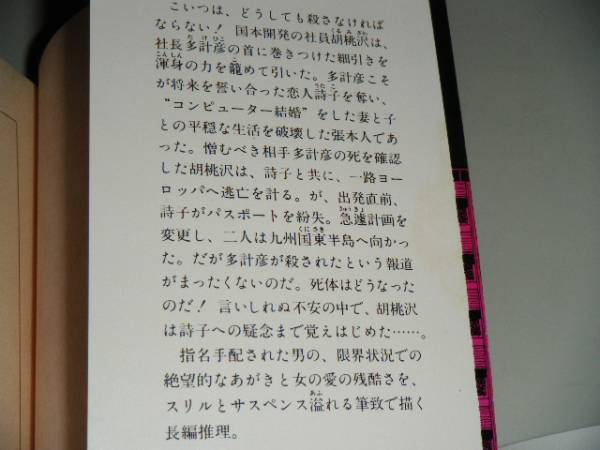 こいつは、どうしても殺さなければ
ならない！ 国本開発の社員胡桃沢は、
社長多計彦の首に巻きつけた細引きを
渾身の力を籠めて引いた。多計彦こそ
が将来を誓い合った恋人詩子を奪い、
“コンピューター結婚”をした妻と子
との平穏な生活を破壊した張本人であ
った。憎むべき相手多計彦の死を確認
した胡桃沢は、詩子と共に、一路ヨー
ロッパへ逃亡を計る。が、出発直前、
詩子がパスポートを紛失。急遽計画を
変更し、二人は九州国東半島へ向かっ
た。だが多計彦が殺されたという報道
がまったくないのだ。死体はどうなった
のだ！ 言いしれぬ不安の中で、胡桃沢
は詩子への疑念まで覚えはじめた……。
指名手配された男の、限界状況での
絶望的なあがきと女の愛の残酷さを、
スリルとサスペンス溢れる筆致で描く
長編推理。